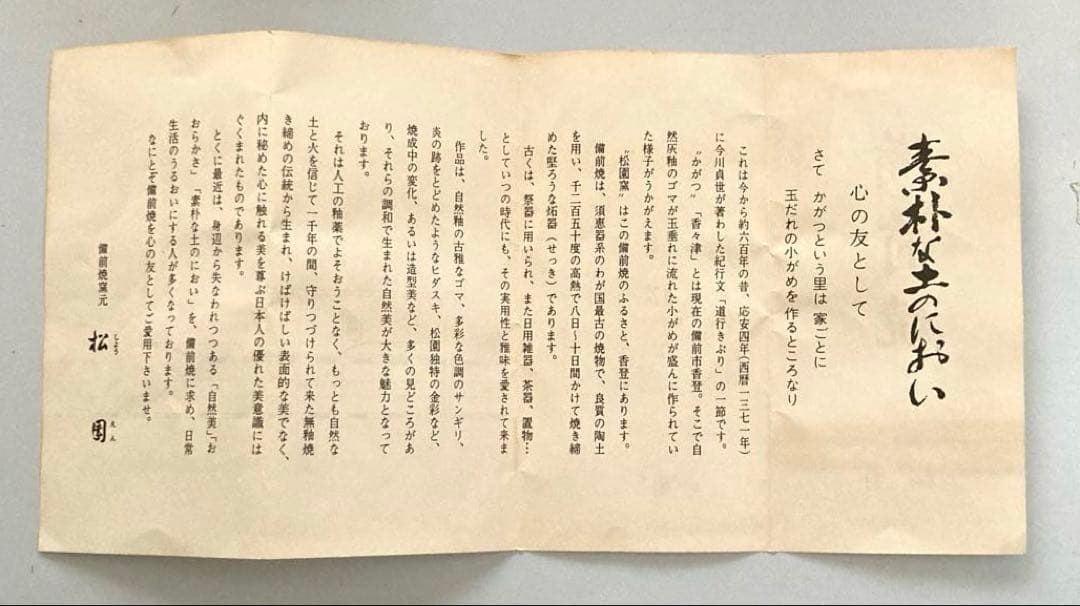 素朴な土のにおい
心の友として
さて かがつという里は 家ごとに
玉だれの小がめを 作るところなり
これは今から約六百年の昔、応安四年(西暦一三七一年)
に今川貞世が著わした紀行文「道行きぶり」の一節です。
"かがつ"「香々津」とは現在の備前市香登。そこで自
然灰釉のゴマが玉垂れに流れた小がめが盛んに作られてい
た様子がうかがえます。
"松園窯"はこの備前焼のふるさと、香登にあります。
備前焼は、須恵器系のわが国最古の焼物で、良質の陶土
を用い、千二百五十度の高熱で八日〜十日間かけて焼き締
めた堅ろうな炻器(せっき)であります。
古くは、祭器に用いられ、また日用雑器、茶器、置物…
としていつの時代にも、その実用性と雅味を愛されて来ま
した。
作品は、自然釉の古雅なゴマ、多彩な色調のサンギリ、
炎の跡をとどめたようなヒダスキ、松園独特の金彩など、
焼成中の変化、あるいは造型美など、多くの見どころがあ
り、それらの調和で生まれた自然美が大きな魅力となって
おります。
それは人工の釉薬でよそおうことなく、もっとも自然な
土と火を信じて一千年の間、守りつづけられて来た無釉焼
き締めの伝統から生まれ、けばけばしい表面的な美でなく、
内に秘めた心に触れる美を尊ぶ日本人の優れた美意識には
ぐくまれたものであります。
とくに最近は、身辺から失なわれつつある「自然美」「お
おらかさ」「素朴な土のにおい」を、備前焼に求め、日常
生活のうるおいにする人が多くなっております。
なにとぞ備前焼を心の友としてご愛用下さいませ。
備前焼窯元 松園
しょうえん